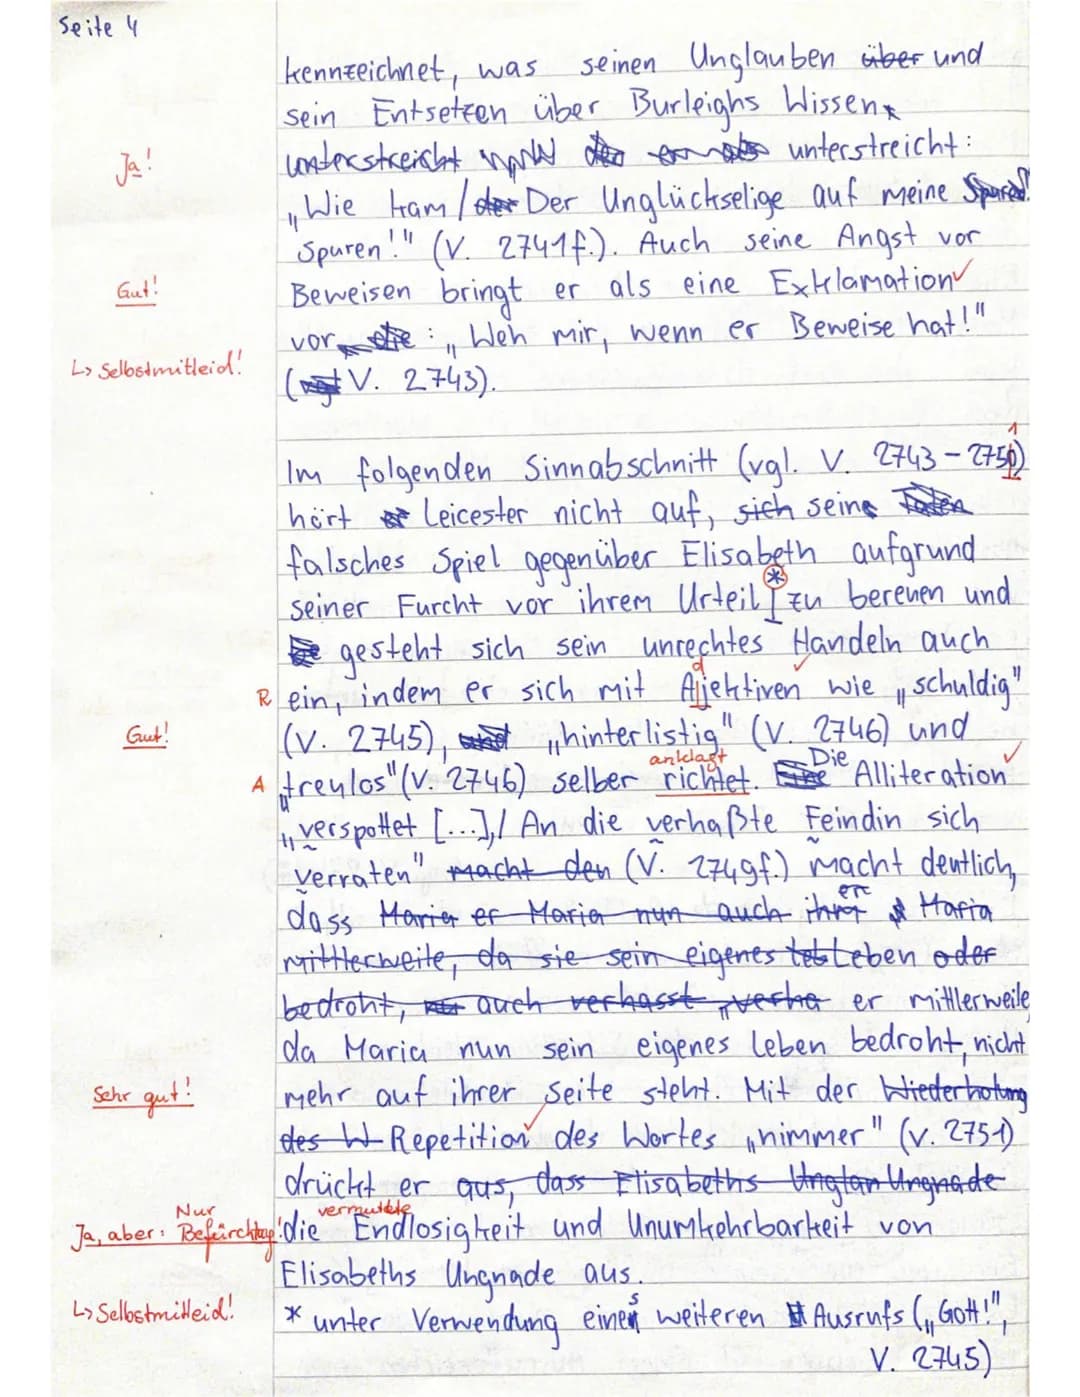 Seite 4
kennzeichnet, was seinen Unglauben über und
sein Entsetzen über Burleighs Wissen
Ja! unterstreicht unterstreicht:
„Wie kam / der Der Unglückselige auf meine Spuren
Spuren!" (V. 2741f.). Auch seine Angst vor
Gut! Beweisen bringt er als eine Exklamation
vor : „Weh mir, wenn er Beweise hat!"
↳ Selbstmitleid! (vgl V. 2743).
1
Im folgenden Sinnabschnitt (vgl. V. 2743 - 2750)
hört er Leicester nicht auf, sich seine Taten
falsches Spiel gegenüber Elisabeth aufgrund
seiner Furcht vor ihrem Urteil * zu bereuen und
gesteht sich sein unrechtes Handeln auch
d
R ein, indem er sich mit Ajektiven wie „schuldig"
Gut! (V. 2745), und „hinterlistig" (V. 2746) und
anklagt Die
A treulos" (V. 2746) selber richtet. Eine Alliteration
„verspottet [...], / An die verhaßte Feindin sich
verraten" macht den (V. 2749f.) macht deutlich,
dass Maria er Maria nun auch ihrer er Maria
mittlerweile, da sie sein eigenes Leben oder
bedroht, auch verhasst er mittlerweile
da Maria nun sein eigenes Leben bedroht, nicht
Sehr gut! mehr auf ihrer Seite steht. Mit der Wiederholung
des W Repetition des Wortes „nimmer" (V. 2751)
drückt er aus, dass Elisabeths Unglau Ungnade
Nur vermutete
Ja, aber: Befürchtung! die Endlosigkeit und Unumkehrbarkeit von
Elisabeths Ungnade aus.
↳ Selbstmitleid! * unter Verwendung eines weiteren Ausrufs („Gott!",
V. 2745)